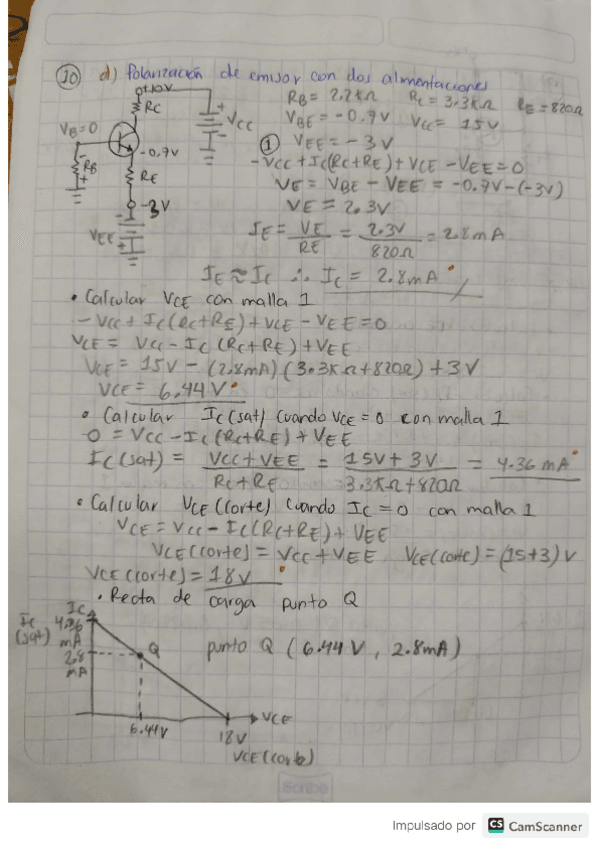 10 d) Polarización de emisor con dos alimentaciones
+10V
RC
VCC
VB=0
-0.7V
RB
RE
-3V
VEE
RB = 2.2kΩ RC = 3.3kΩ RE = 820Ω
VBE = -0.7V VCC = 15V
① VEE = -3V
-VCC + IC(RC+RE) + VCE - VEE = 0
VE = VBE - VEE = -0.7V-(-3V)
VE = 2.3V
IE = VE/RE = 2.3V/820Ω = 2.8mA
IE ≈ IC ∴ IC = 2.8mA
• Calcular VCE con malla 1
-VCC + IC(RC+RE) + VCE - VEE = 0
VCE = VCC - IC (RC+RE) + VEE
VCE = 15V - (2.8mA)(3.3KΩ+820Ω) + 3V
VCE = 6.44V
• Calcular IC(sat) cuando VCE = 0 con malla 1
0 = VCC - IC(RC+RE) + VEE
IC(sat) = VCC+VEE/RC+RE = 15V+3V/3.3KΩ+820Ω = 4.36 mA
• Calcular VCE (corte) cuando IC = 0 con malla 1
VCE = VCC - IC(RC+RE) + VEE
VCE(corte) = VCC + VEE VCE(corte) = (15+3) V
VCE(corte) = 18V
• Recta de carga punto Q
IC
IC (sat) 4.36 mA
Q
punto Q (6.44V, 2.8mA)
2.8 mA
VCE
6.44V
18V
VCE(corte)
Scribe
Impulsado por CS CamScanner